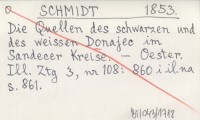 SCHMIDT 1853.
Die Quellen des schwarzen und
des weissen Donajec im
Sandecer Kreise. Oester.
Ill. Ztg 3, nr 108: 860 i il.na
s. 861.